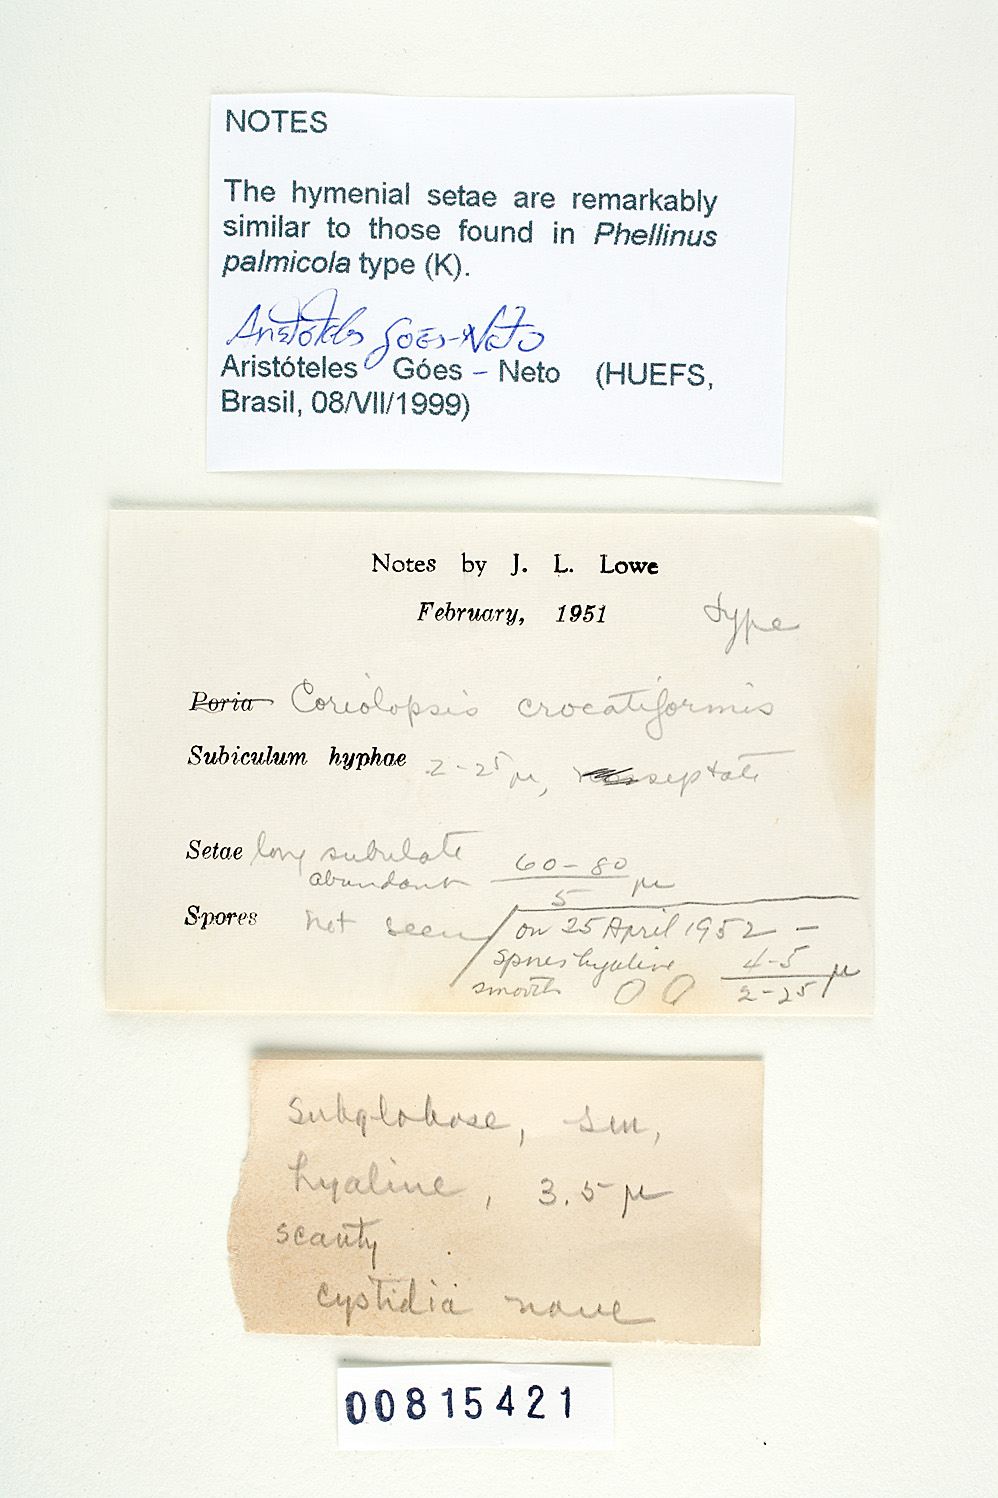 NOTES
The hymenial setae are remarkably
similar to those found in Phellinus
palmicola type (K).
Aristóteles Góes-Neto
Aristóteles Góes – Neto (HUEFS,
Brasil, 08/VII/1999)
Notes by J. L. Lowe
February, 1951
type
Poria Coriolopsis crocatiformis
Subiculum hyphae 2-2⁵μ, septate
Setae long subulate
abundant 60-80/5 μ
Spores not seen
on 25 April 1952 –
spores hyaline
smooth 4-5/2-2⁵ μ
Subglobose, sm,
hyaline, 3.5 μ
scanty
cystidia none
00815421